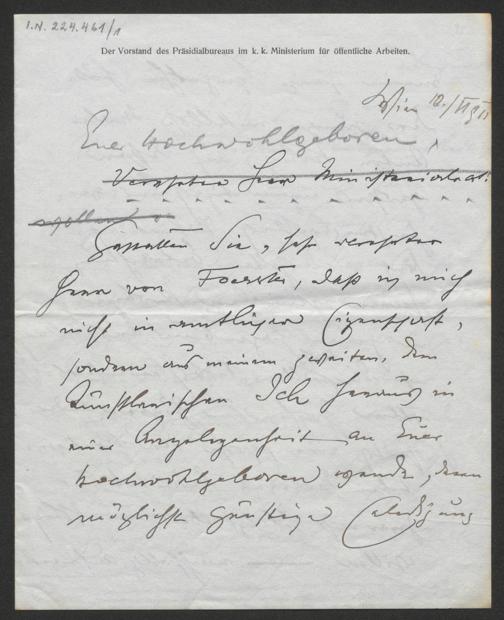 I.N. 224.461/1
Der Vorstand des Präsidialbureaus im k. k. Ministerium für öffentliche Arbeiten.
Wien 10./VI
Euer Hochwohlgeboren,
Verehrter Herr Ministerialrat!
Gestatten Sie, sehr verehrter
Herr von Foerster, daß ich mich
nicht in amtlicher Eigenschaft,
sondern aus meinem zweiten, dem
künstlerischen Ich heraus in
einer Angelegenheit an Euer
Hochwohlgeboren wende, deren
möglichst günstige Erledigung